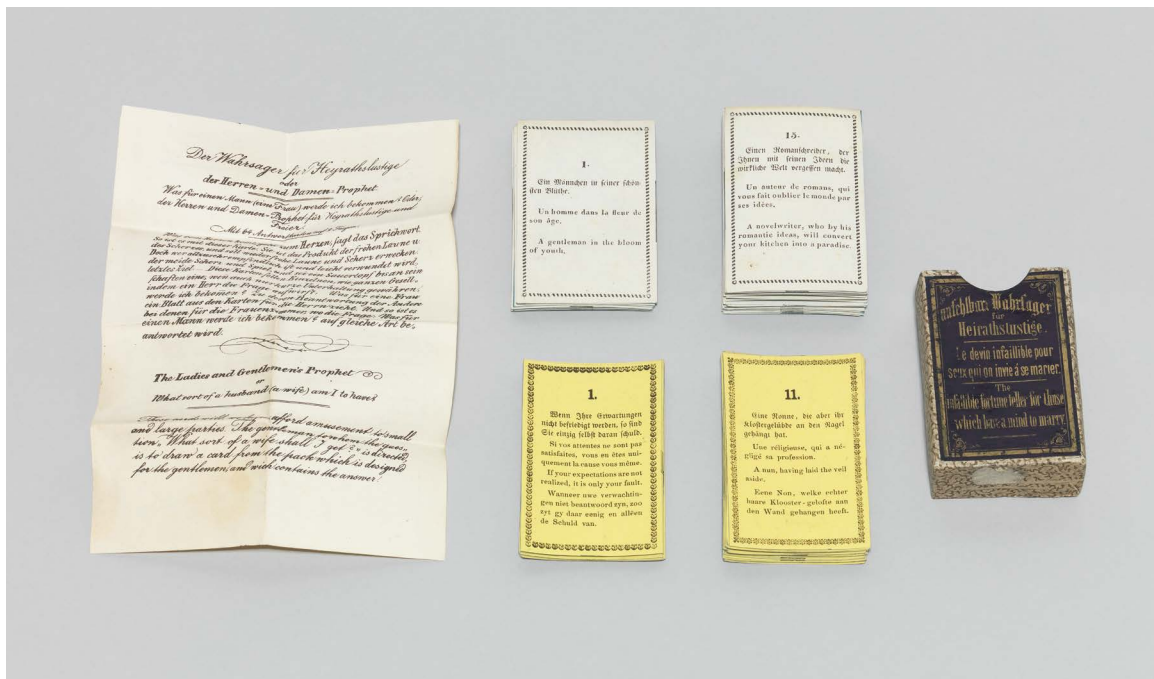 Der Wahrsager für Heyrathslustige
oder
der Herren- und Damen-Prophet
Was für einen Mann (eine Frau) werde ich bekommen? Oder,
der Herren und Damen-Prophet für Heyrathslustige und
Freier
Mit 64 Antworten
zum Herzen, sagt das Sprichwort
das Produkt der frohen Laune u
und Scherz erwecken
leicht verwundet wird,
letztes Ziel
indem ein Herr die Frage aufwirft. Was für eine Frau
werde ich bekommen? Zu deren Beantwortung der Andere
ein Blatt aus den Karten für die Herren zieht. Und so ist es
bei denen für die Frauenzimmer, wo die Frage: Was für
einen Mann werde ich bekommen? auf gleiche Art be-
antwortet wird.
The Ladies and Gentlemen's Prophet
or
What sort of a husband (a wife) am I to have?
afford amusement to small
and large parties. The gentleman to whom the ques-
tion, What sort of a wife shall I get? is directed
is to draw a card from the pack which is designed
for the gentlemen, and wich contains the answer.
1.
Ein Männchen in seiner schön-
sten Blüthe.
Un homme dans la fleur de
son âge.
A gentleman in the bloom
of youth.
15.
Einen Romanschreiber, der
Ihnen mit seinen Ideen die
wirkliche Welt vergessen macht.
Un auteur de romans, qui
vous fait oublier le monde par
ses idées.
A novelwriter, who by his
romantic ideas, will convert
your kitchen into a paradise.
1.
Wenn Ihre Erwartungen
nicht befriedigt werden, so sind
Sie einzig selbst daran schuld.
Si vos attentes ne sont pas
satisfaites, vous en êtes uni-
quement la cause vous même.
If your expectations are not
realized, it is only your fault.
Wanneer uwe verwachtin-
gen niet beantwoord zyn, zoo
zyt gy daar eenig en alléen
de Schuld van.
11.
Eine Nonne, die aber ihr
Klostergelübde an den Nagel
gehängt hat.
Une réligieuse, qui a né-
gligé sa profession.
A nun, having laid the veil
aside.
Eene Non, welke echter
haare Klooster-gelofte aan
den Wand gehangen heeft.
Wahrsager
für
Heirathslustige
Le devin infaillible pour
ceux qui on invie à se marier.
The
infallible fortune teller for those
which have a mind to marry.